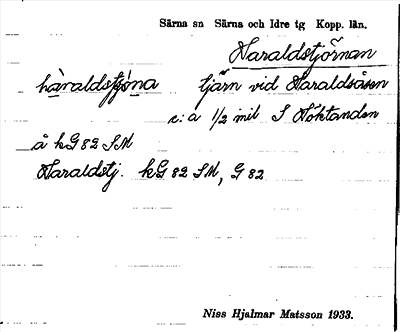 Särna sn Särna och Idre tg Kopp. län.
Haraldstjärnan
hàraldstjóna tjärn vid Haraldsåsen
c:a 1/2 mil S Höktanden
å kG 82 SM
Haraldstj. kG 82 SM, G 82
Niss Hjalmar Matsson 1933.